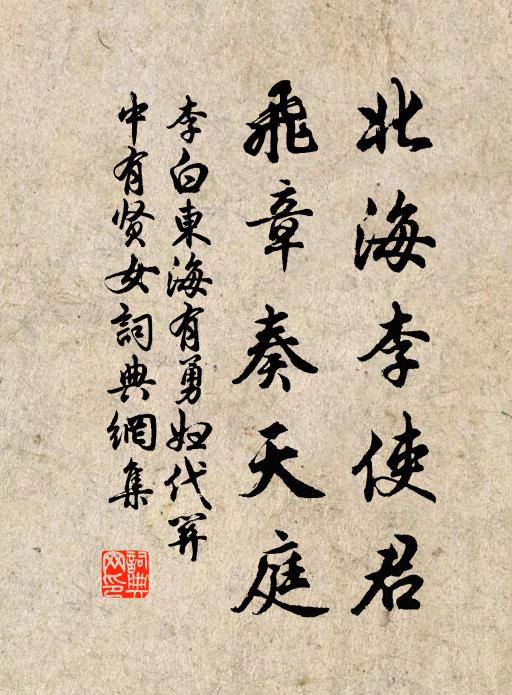 北海李使君
飛章奏天庭
李白東海有勇妇代
中有贤女詞典網集
詞典网印